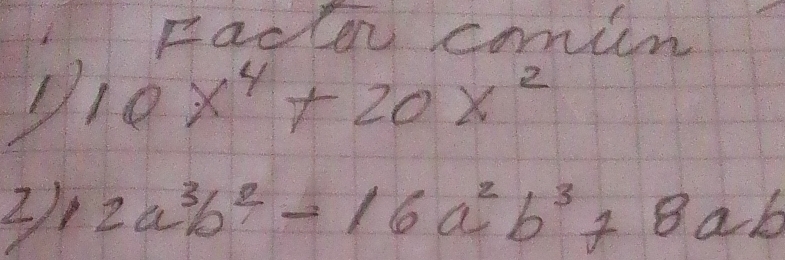 Factor común
1) 10x⁴ + 20x²
2) 12a³b² - 16a²b³ + 8ab